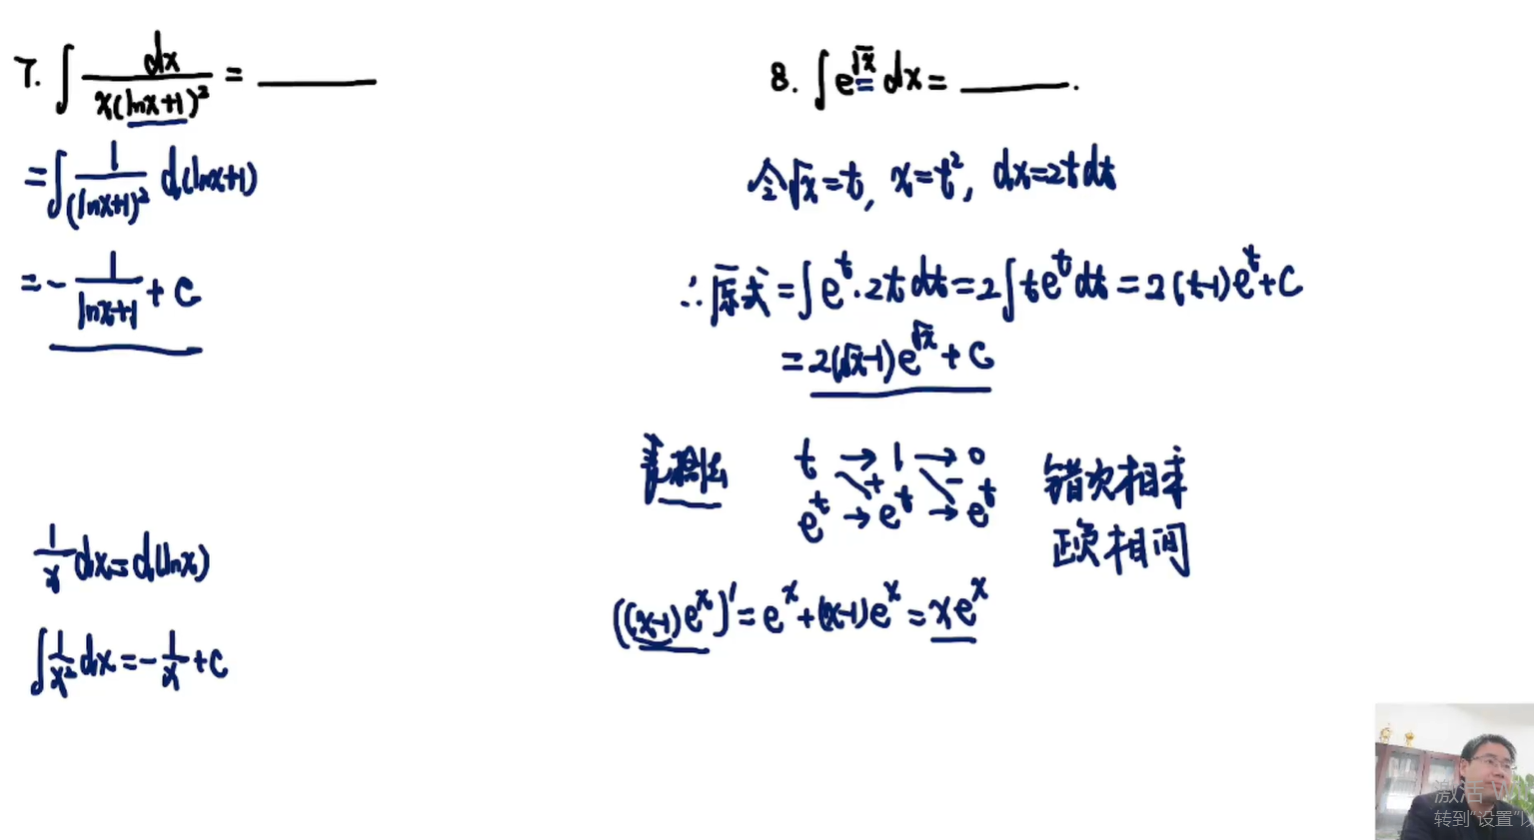 7. ∫ dx / x(lnx+1)² = ______
= ∫ 1/(lnx+1)² d(lnx+1)
= - 1/(lnx+1) + C
1/x dx = d(lnx)
∫ 1/x² dx = - 1/x + C
8. ∫ e^√x dx = ______.
令√x = t, x = t², dx = 2t dt
∴ 原式 = ∫ e^t · 2t dt = 2∫ t e^t dt = 2(t-1)e^t + C
= 2(√x-1)e^√x + C
表格法 t → 1 → 0
+ -
e^t → e^t → e^t
错次相乘
正负相间
((x-1)e^x)' = e^x + (x-1)e^x = xe^x
激活 W
转到"设置"以